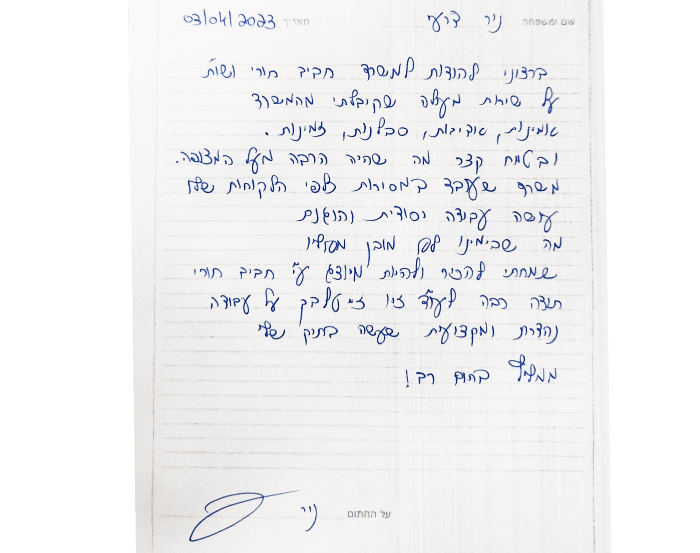 שם ומשפחה ניר דרעי תאריך 03/04/2023
ברצוני להודות למשרד חביב חורי ושות'
על שירות מעולה שקיבלתי מהמשרד
אמינות, אדיבות, סבלנות, זמינות.
ובטווח קצר מה שהיה הרבה מעל המצופה.
משרד שעובד במסירות כלפי הלקוחות שלו
עושה עבודה יסודית והוגנת
מה שבימינו לא מובן מאליו
שמחתי להכיר ולהיות מיוצג ע"י חביב חורי
תודה רבה לעו"ד זיו על עבודה
נהדרת ומקצועית שעשה בתיק שלי
ממליץ בחום רב!
על החתום ניר